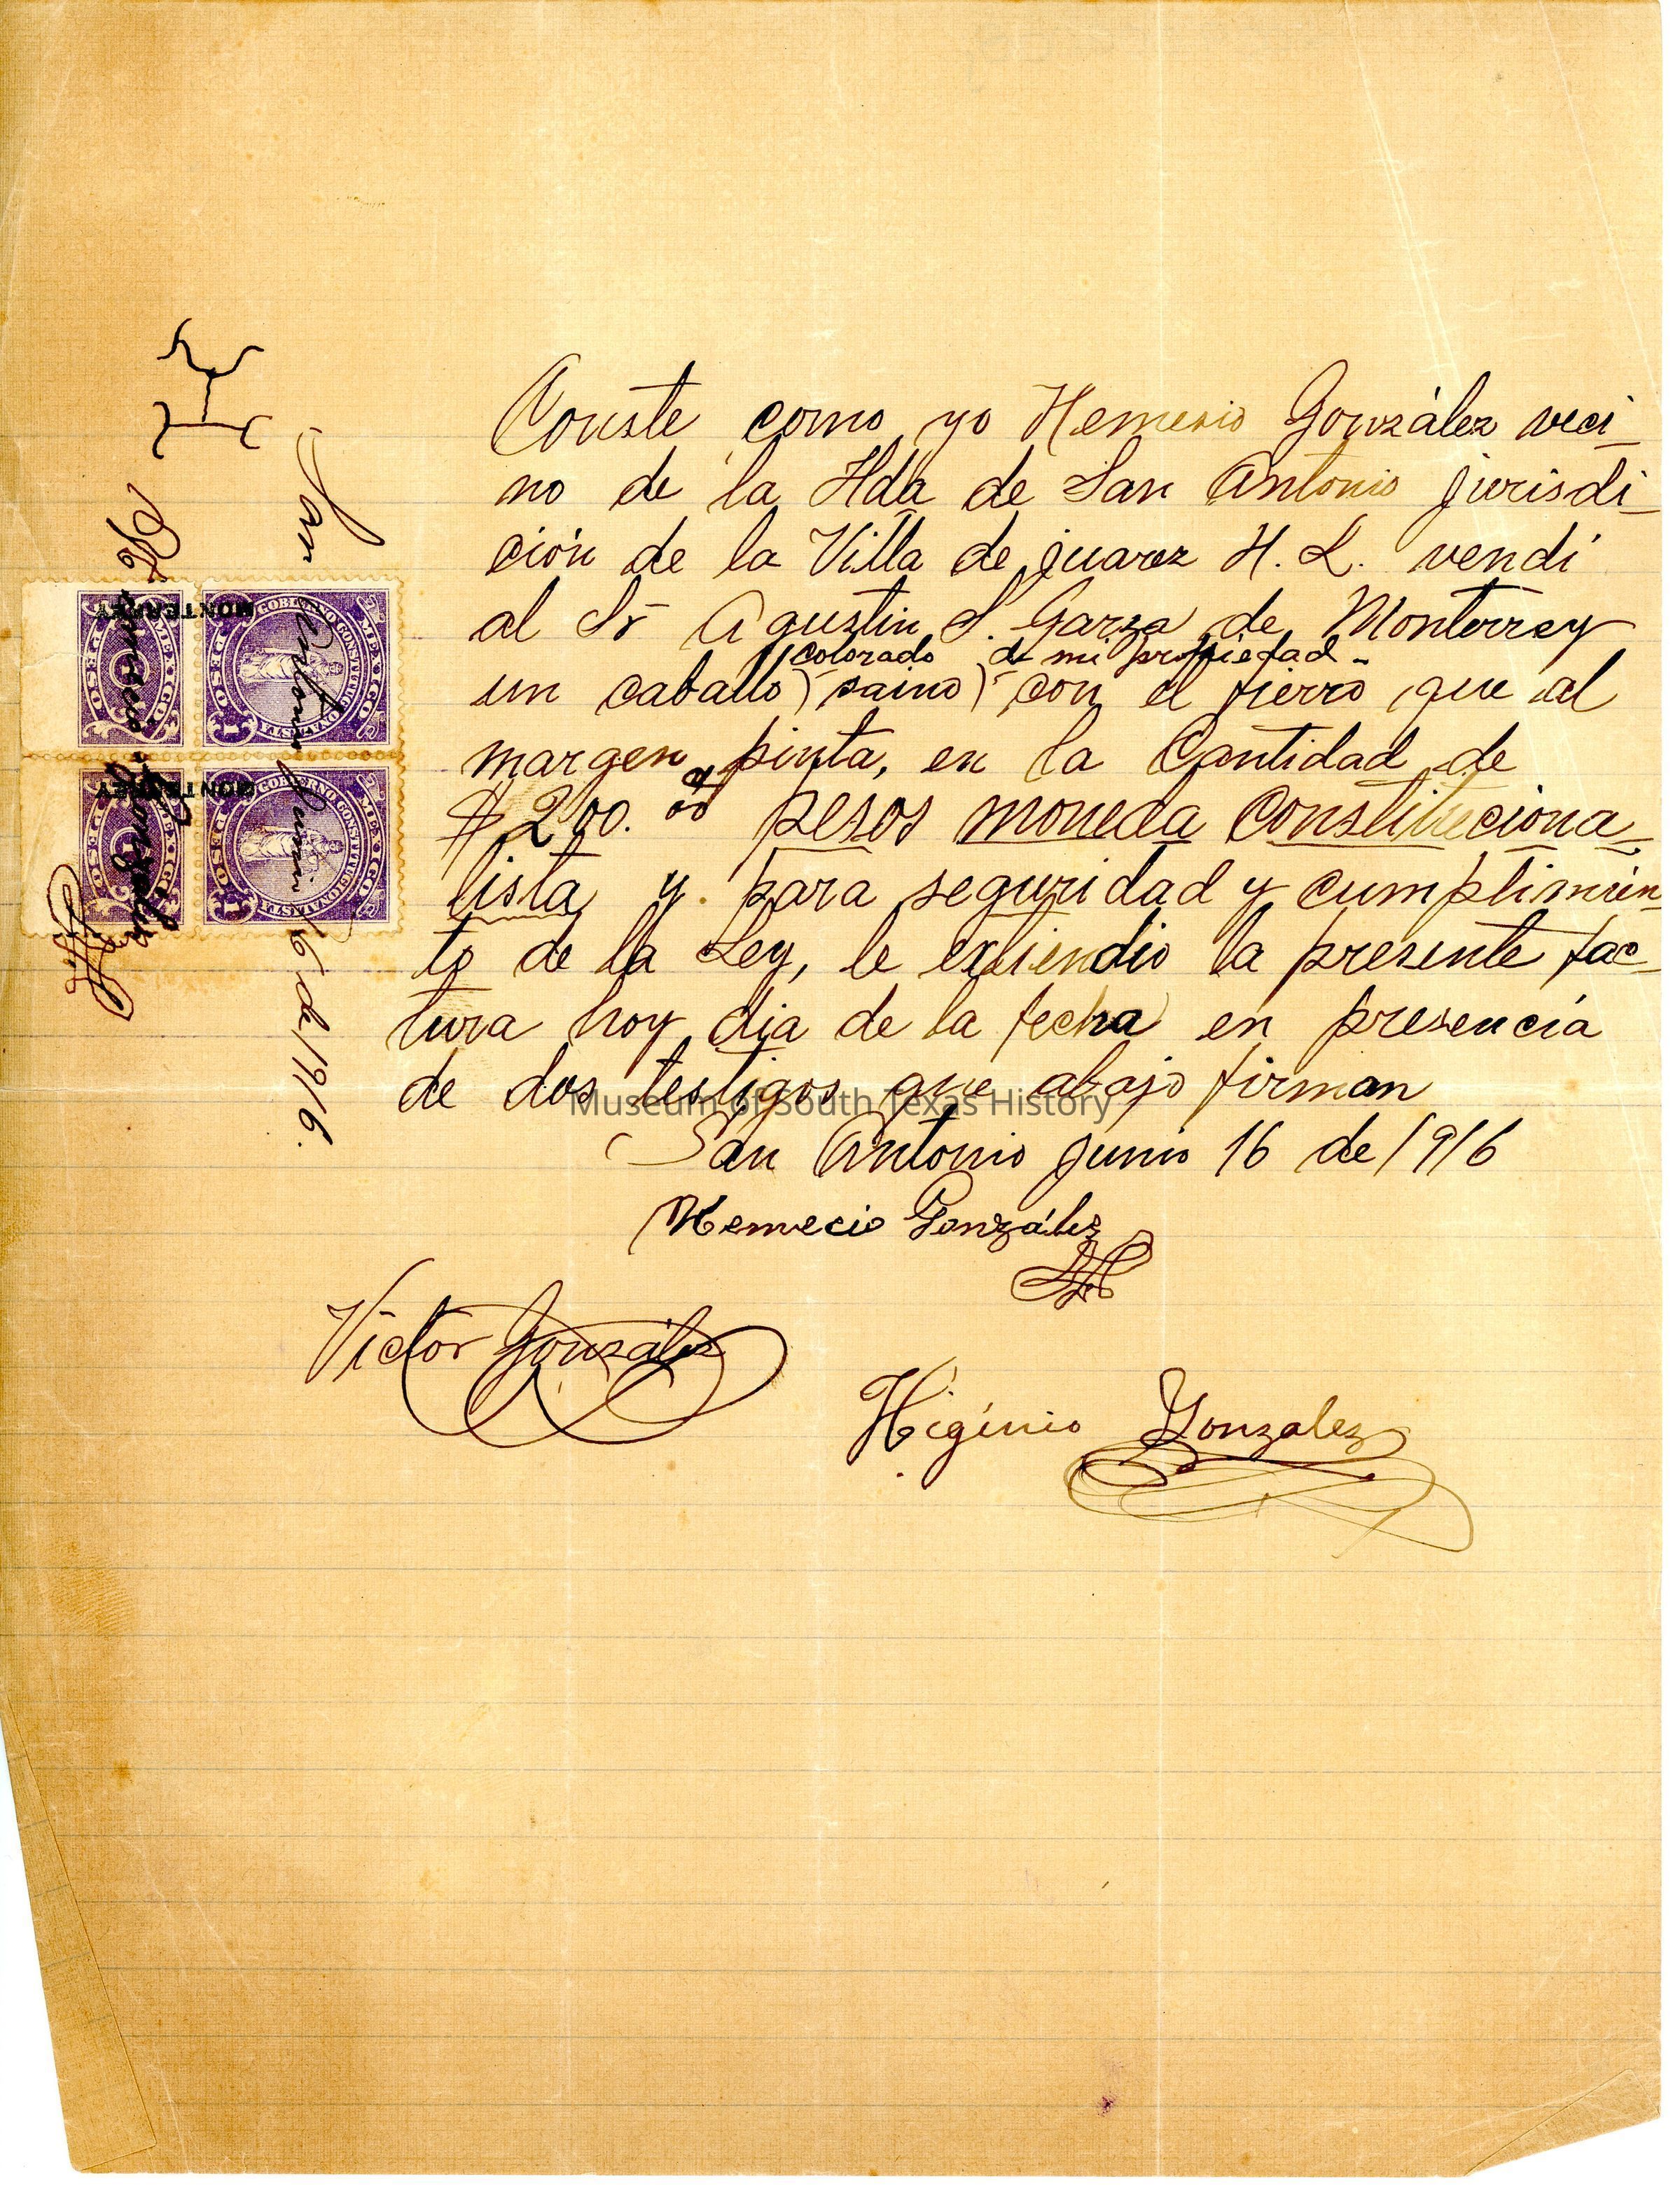 Conste como yo Nemesio González veci-
no de la Hda de San Antonio jurisdi-
ción de la Villa de juarez N. L. vendí
al Sr Agustin S. Garza de Monterrey
colorado de mi propiedad -
un caballo (saino) con el fierro que al
margen pinta, en la Cantidad de
$200.00 pesos moneda Constituciona-
lista y para seguridad y cumplimien-
to de la Ley, le extiendio la presente fac-
tura hoy dia de la fecha en presencia
de dos testigos que abajo firman
San Antonio junio 16 de 1916
Nemecio González
Victor González
Higinio Gonzalez
San Antonio Junio 16 de 1916.
Nemecio González
MONTERREY
MONTERREY
GOBIERNO CONSTITUCIONALISTA
GOBIERNO CONSTITUCIONALISTA
Museum of South Texas History